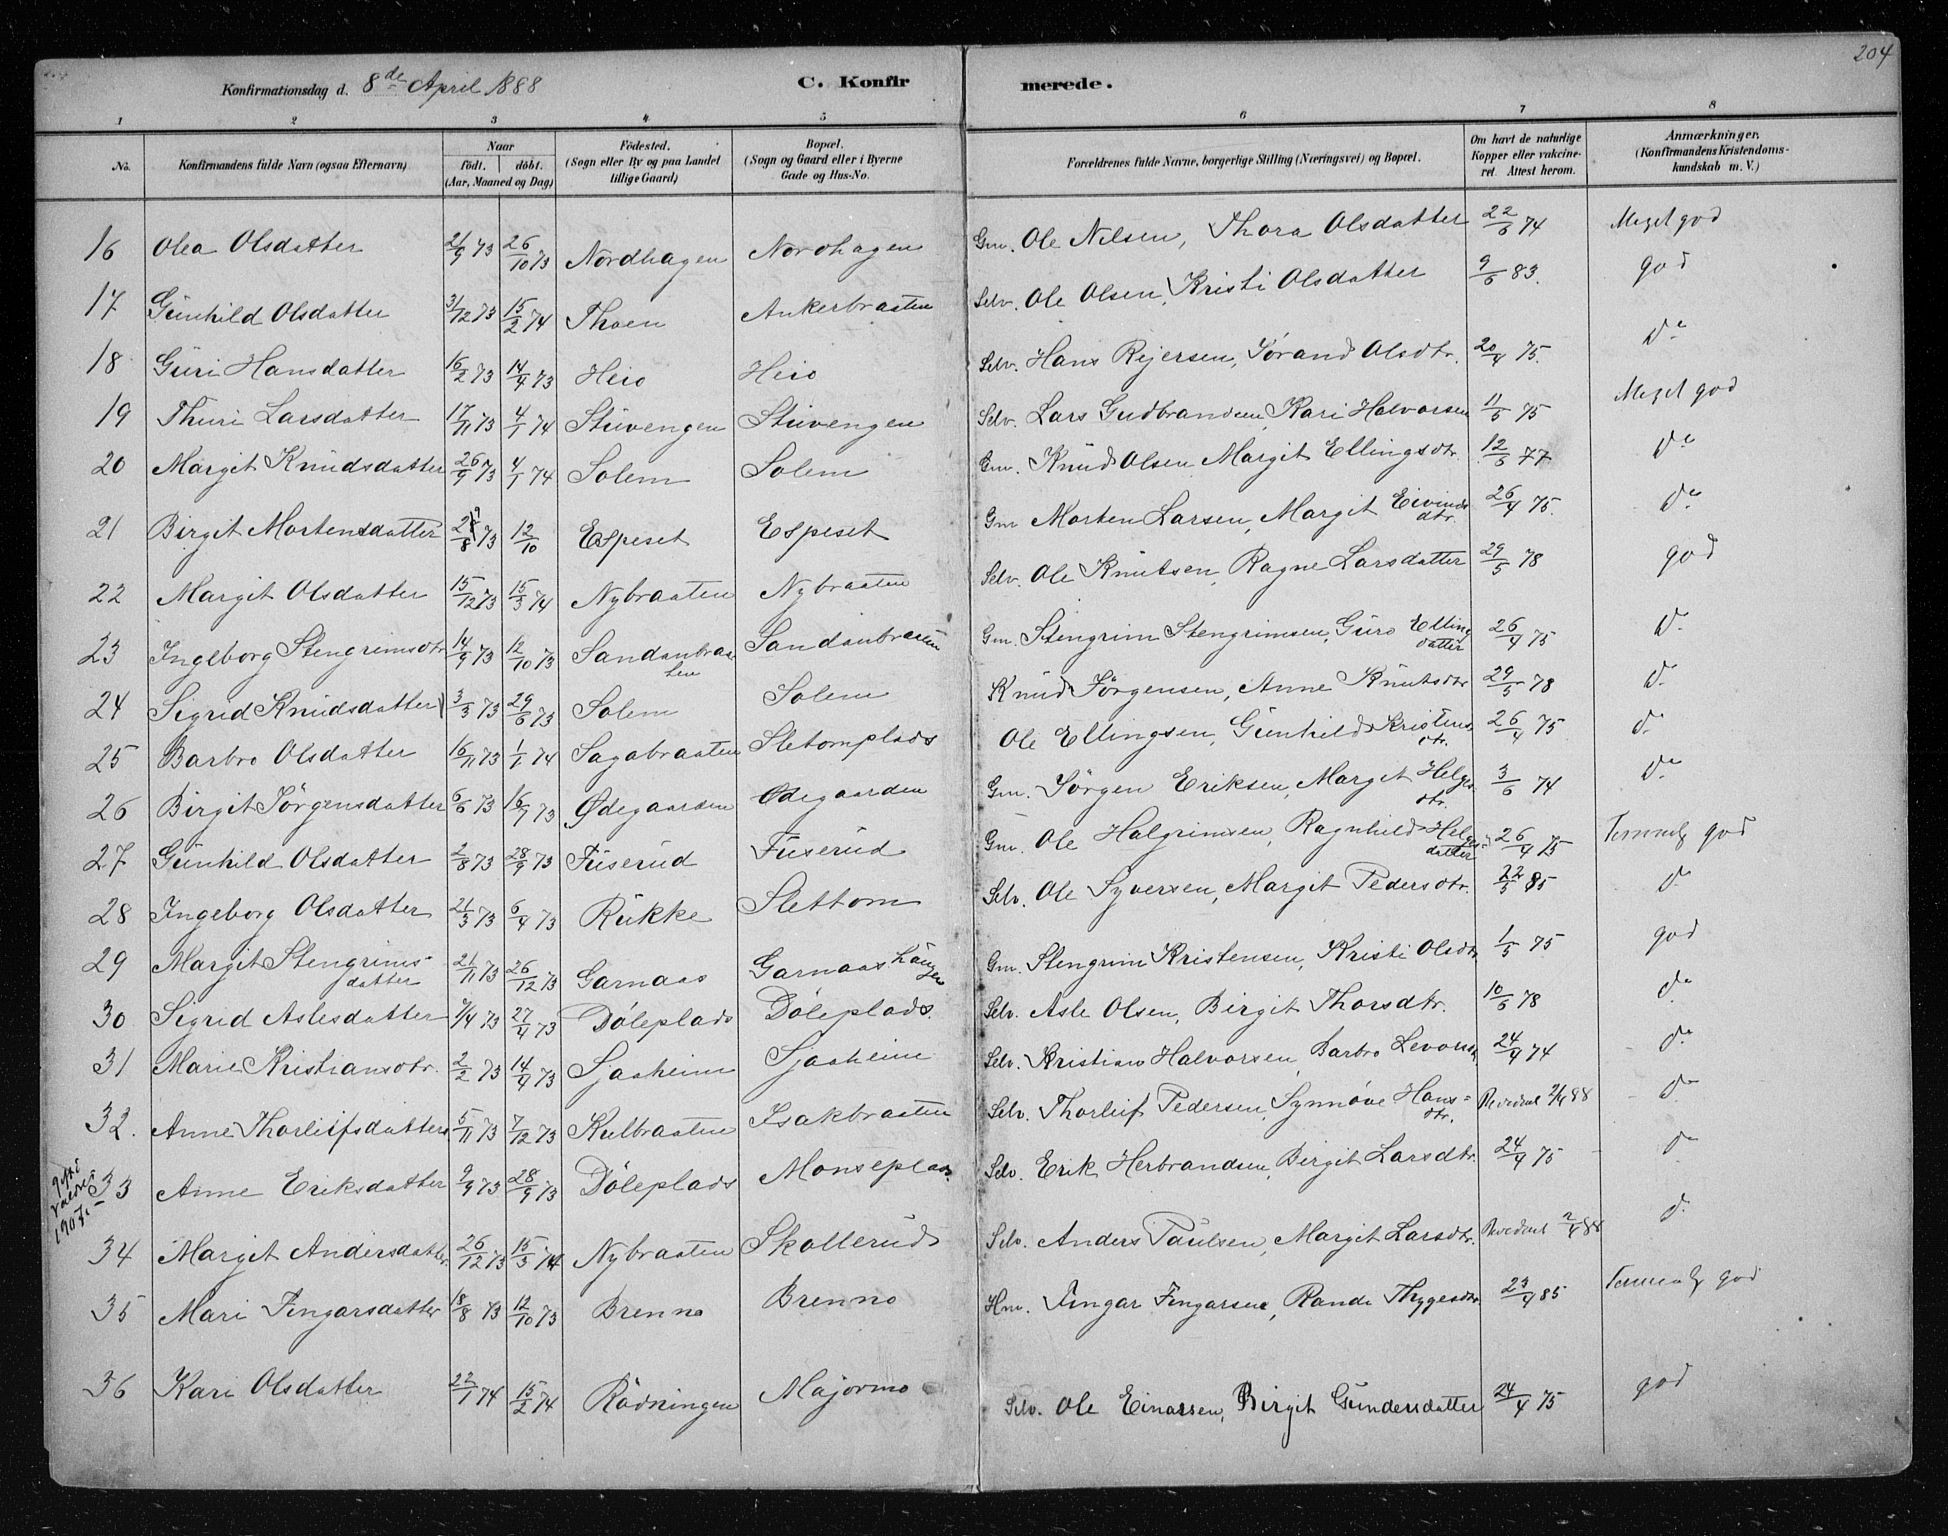 204
Konfirmationsdag d. 8de April 1888 C. Konfirmerede.
1 2 3 4 5 6 7 8
No. Konfirmandens fulde Navn (ogsaa Efternavn) Naar født. døbt. (Aar, Maaned og Dag) Fødested. (Sogn eller By og paa Landet tillige Gaard) Bopæl. (Sogn og Gaard eller i Byerne Gade og Hus-No. Forældrenes fulde Navne, borgerlige Stilling (Næringsvei) og Bopæl. Om havt de naturlige Kopper eller vakcineret. Attest herom. Anmærkninger. (Konfirmandens Kristendomskundskab m. V.)
16 Olea Olsdatter 21/9 73 26/10 73 Nordhagen Nordhagen Gm. Ole Nilsen, Thora Olsdatter 22/6 74 Meget god
17 Gunhild Olsdatter 31/12 73 15/2 74 Thoen Ankerbraaten Selv. Ole Olsen, Kristi Olsdatter 9/6 83. god
18 Guri Hansdatter 16/2 73 14/4 73 Heio Heio Selv. Hans Rejersen, Jørand Olsdtr. 20/4 75. do
19 Thuri Larsdatter 17/11 73 4/1 74 Stuvengen Stuvengen Selv. Lars Gudbrandsen, Kari Halvorsen 11/5 75 Meget god
20 Margit Knudsdatter 26/9 73 4/1 74 Solem Solem Gm. Knud Olsen Margit Ellingsdtr. 12/5 77 do
21 Birgit Mortensdatter 73 12/10 Espeset Espeset Gm Morten Larsen, Margit Eivindsdtr. 26/4 75. do
22 Margit Olsdatter 15/12 73 15/3 74 Nybraaten Nybraaten Selv. Ole Knutsen, Ragne Larsdatter 29/5 78 god
23 Ingeborg Stengrimsdtr 14/9 73 12/10 73 Sandanbraaten Sandanbraaten Gm. Stengrim Stengrimsen, Guro Ellingdatter 26/4 75 do
24 Sigrid Knudsdatter 3/3 73 29/6 73 Solem Solem Knud Jørgensen, Anne Knutsdtr 29/5 78 do
25 Barbro Olsdatter 16/11 73 1/1 74 Sagabraaten Sletomplads Ole Ellingsen, Gunhild Kristensdtr. 26/4 75 do
26 Birgit Jørgensdatter 6/6 73 16/7 73 Ødegaarden Ødegaarden Gm. Jørgen Eriksen, Margit Helgesdtr. 3/6 74 do
27 Gunhild Olsdatter 2/8 73 28/9 73 Fuserud Fuserud Gm. Ole Halgrimsen, Ragnhild Helgesdatter 26/4 75 Temmelg god
28 Ingeborg Olsdatter 21/3 73 6/4 73 Rukke Slettom Selv. Ole Syversen, Margit Pedersdtr. 22/5 85 do
29 Margit Stengrimsdatter 21/11 73 26/12 73 Garnaas Garnaas Gm. Stengrim Kristensen, Kristi Olsdtr 1/5 75 god
30 Sigrid Aslesdatter 7/4 73 27/4 73 Døleplads Døleplads. Selv. Asle Olsen, Birgit Thorsdtr. 10/6 78 do
31 Marie Kristiansdtr. 2/2 73 14/4 73 Sjaaheim Sjaaheim Selv. Kristian Halvorsen, Barbro Levorsd 24/4 74 do
32. Anne Thorleifsdatter 5/11 73 7/12 73 Kulbraaten Isakbraaten Selv. Thorleif Pedersen, Synnøve Hansdtr. 2/4 88 do
gift i Valdres 1907. 33 Anne Eriksdatter 9/9 73 28/9 73 Døleplads Monseplads Selv. Erik Herbrandsen, Birgit Larsdtr. 24/4 75 do
34 Margit Andersdatter 26/12 73 15/3 74 Nybraaten Skollerud Selv. Anders Paulsen, Margit Larsdtr. 2/4 88 do
35 Mari Fingarsdatter 18/8 73 12/10 73 Brenno Brenno Hm. Fingar Fingarsen, Rande Thygesdtr. 23/4 85 Temmelg god
36 Kari Olsdatter 22/1 74 15/2 74 Rødningen Majormo Selv. Ole Einarsen, Birgit Gundersdatter 24/4 75 god